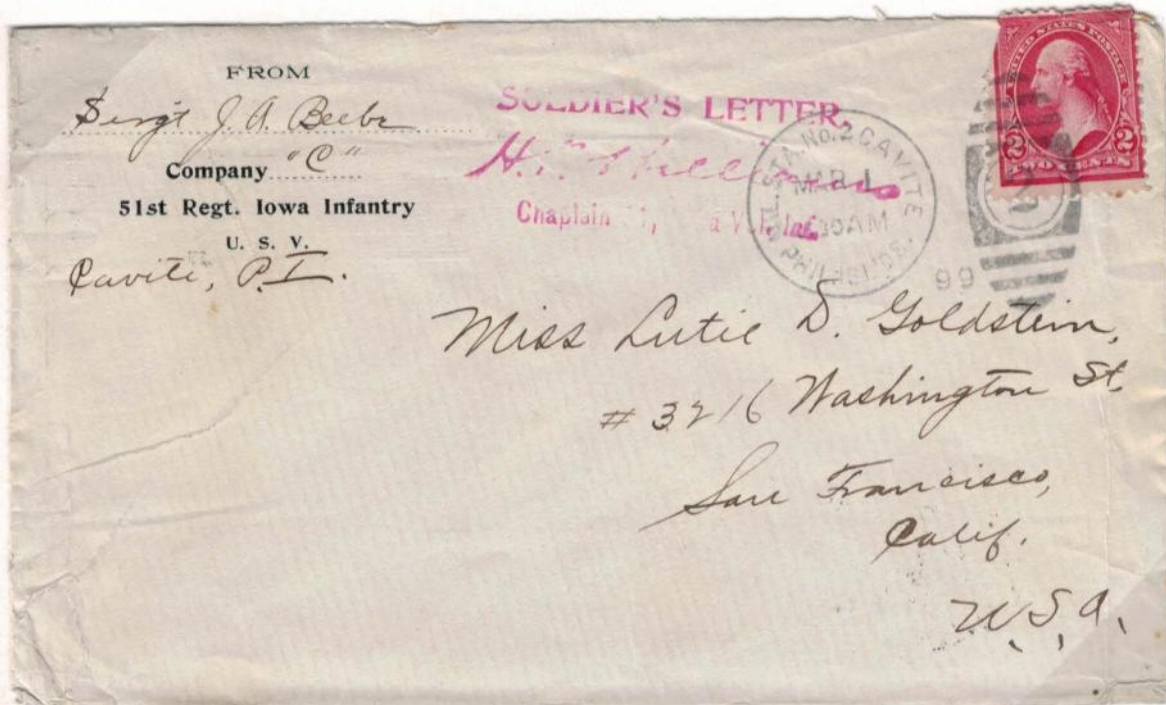 FROM
Sergt J. A. Beebe
Company "C"
51st Regt. Iowa Infantry
U. S. V.
Cavite, P.I.
SOLDIER'S LETTER,
H.
Chaplain Inf.
STA. No. 2 CAVITE
MAR 1
30 AM
PHIL. ISL'DS.
99
UNITED STATES POSTAGE
2 2
TWO CENTS
Miss Lutie D. Goldstein,
# 3216 Washington St.
San Francisco,
Calif.
U.S.A.